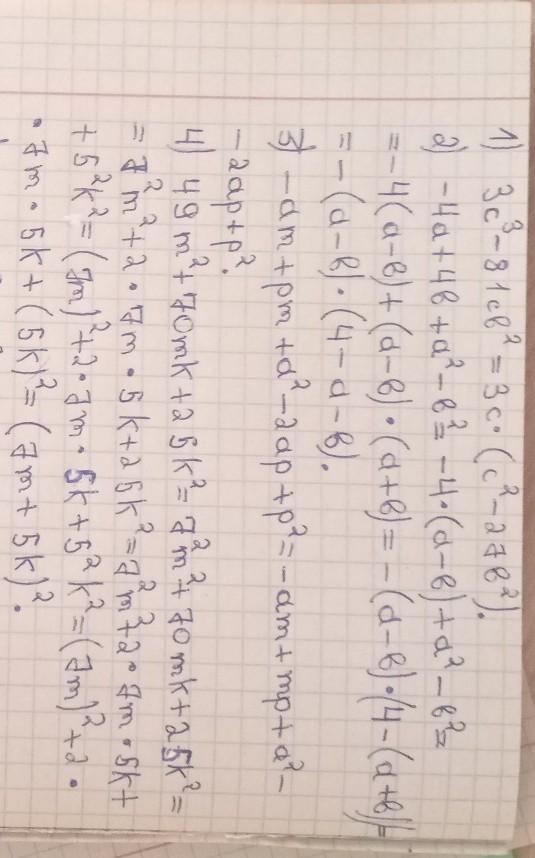 1) 3c³ - 81cb² = 3c · (c² - 27b²).
2) -4a + 4b + a² - b² = -4 · (a - b) + a² - b² =
= -4(a - b) + (a - b) · (a + b) = -(a - b) · (4 - (a + b)) =
= -(a - b) · (4 - a - b).
3) -am + pm + a² - 2ap + p² = -am + mp + a² -
- 2ap + p².
4) 49m² + 70mk + 25k² = 7²m² + 70mk + 25k² =
= 7²m² + 2 · 7m · 5k + 25k² = 7²m² + 2 · 7m · 5k +
+ 5²k² = (7m)² + 2 · 7m · 5k + 5²k² = (7m)² + 2 ·
· 7m · 5k + (5k)² = (7m + 5k)².